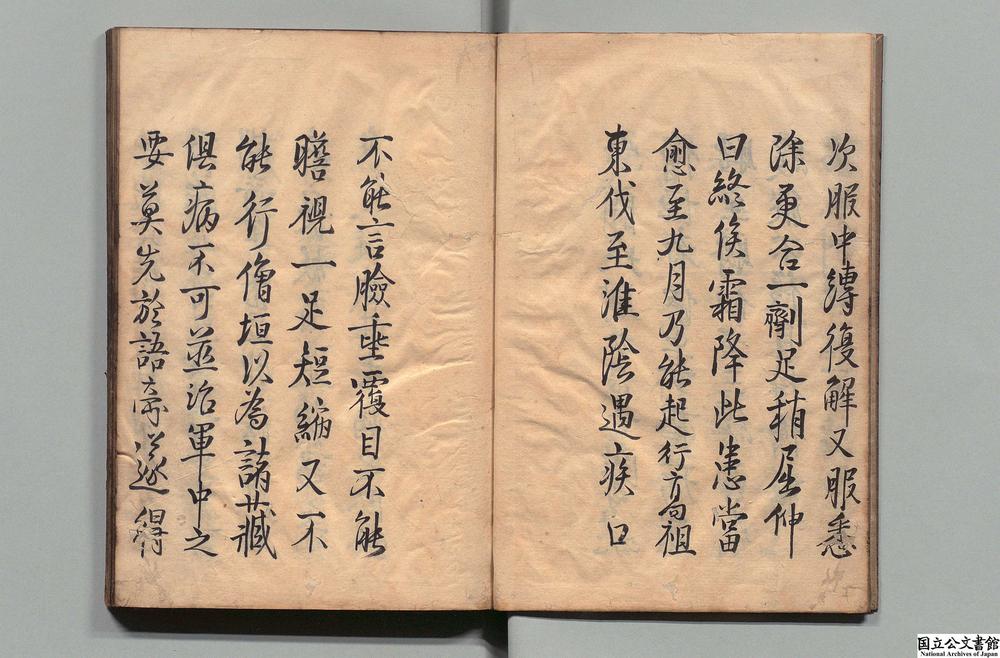 次服中縛復解又服悉
除更合一劑足稍屈伸
曰終俟霜降此患當
愈至九月乃能起行高祖
東伐至淮陰遇疾口
不能言臉垂覆目不能
瞻視一足短縮又不
能行僧垣以為諸藏
俱病不可並治軍中之
要莫先於語處遂得
国立公文書館
National Archives of Japan